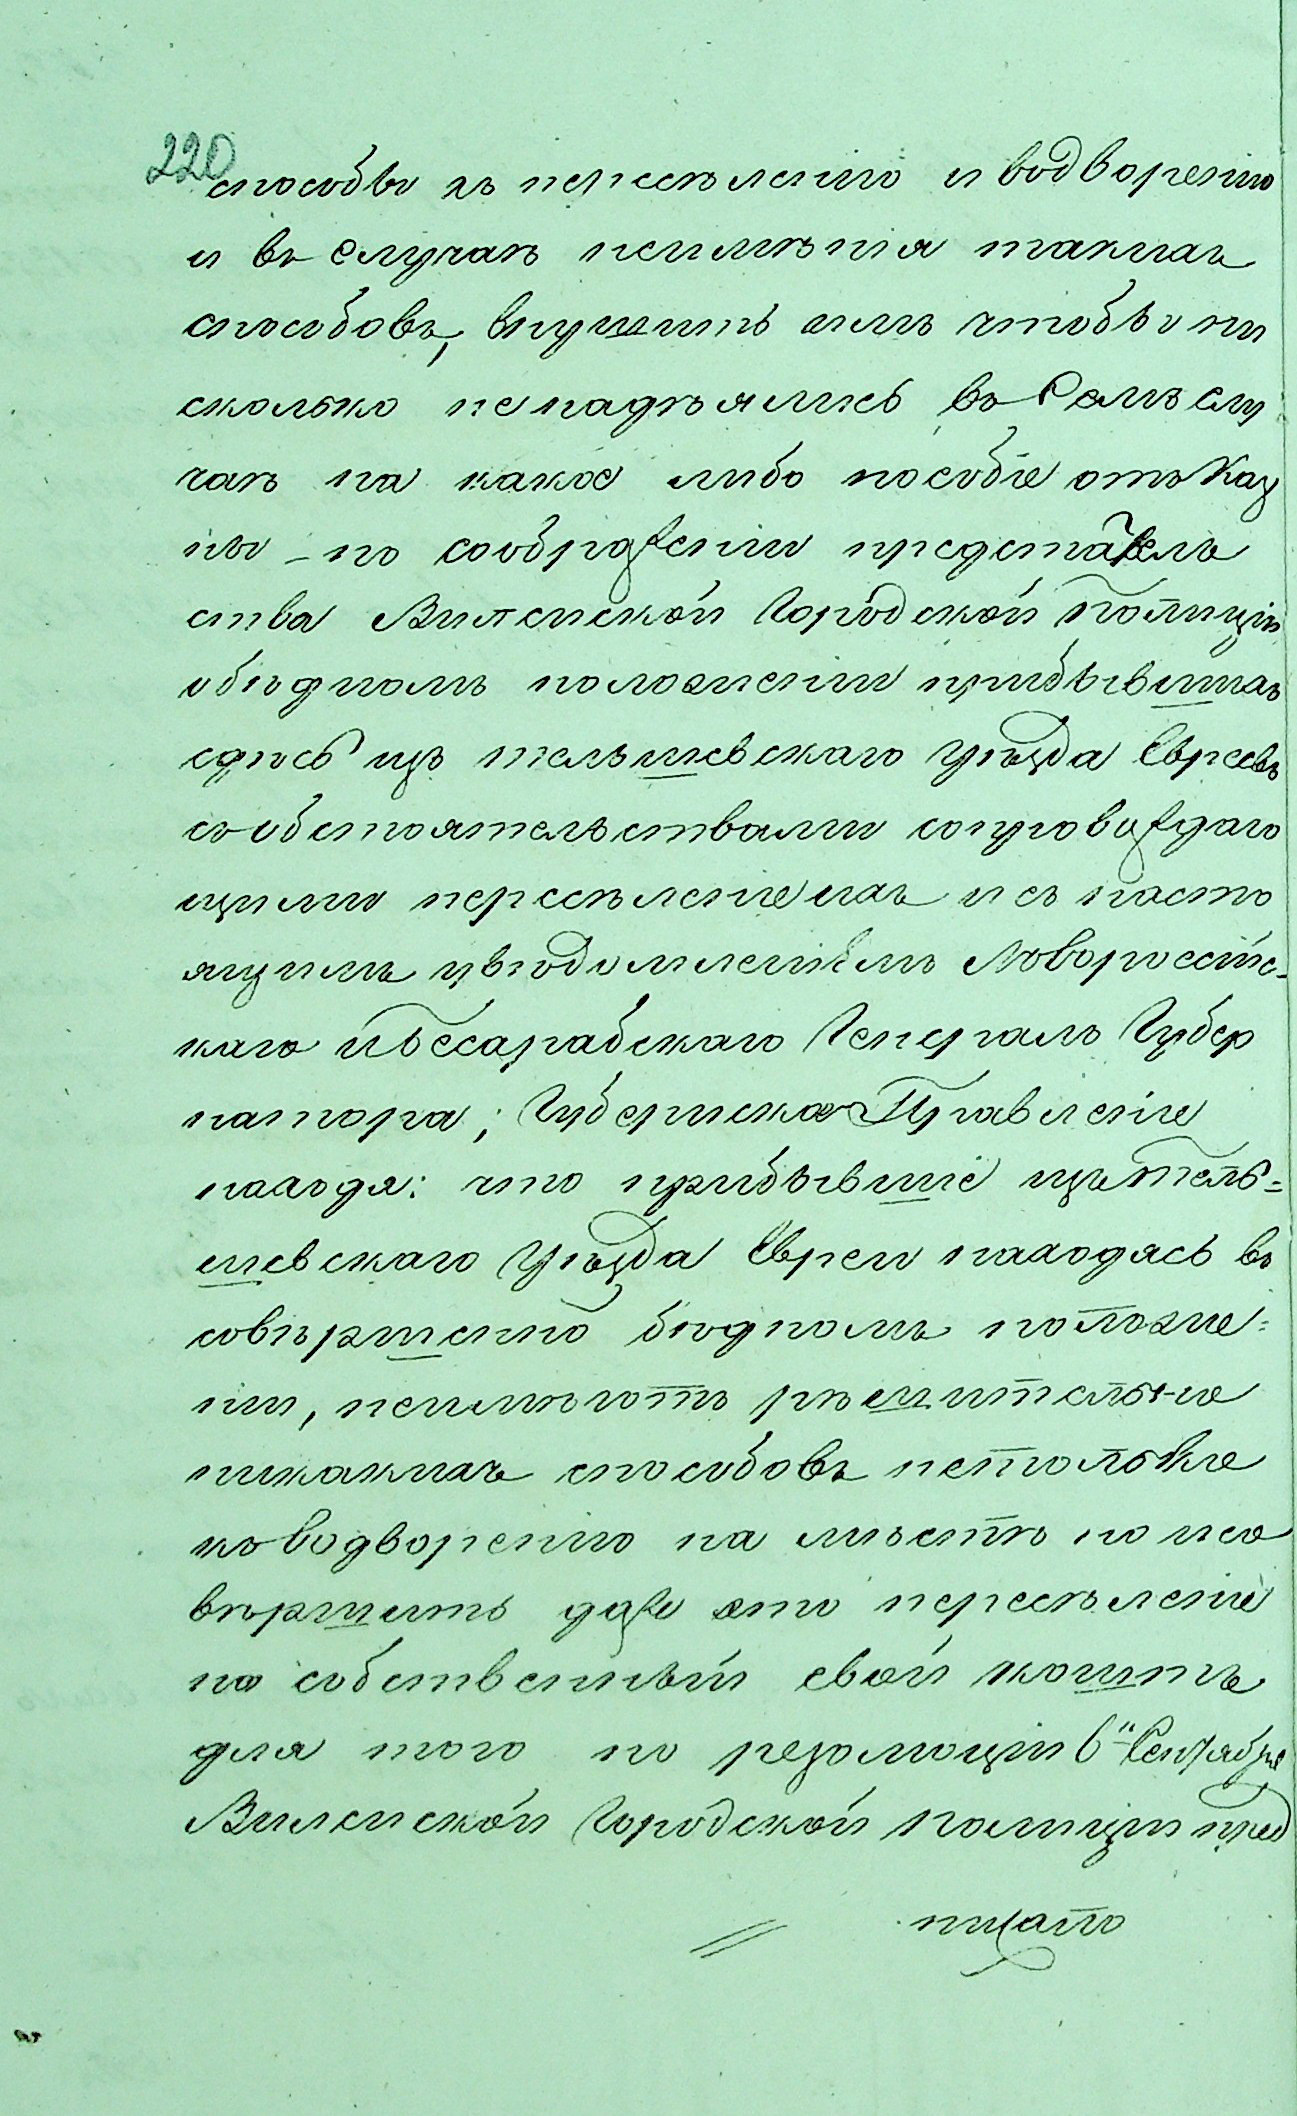 220
способы къ переселенію и водворенію
и въ случаѣ неимѣнія такихъ
способовъ, внушить имъ чтобы ни
сколько ненадѣялись въ семъ слу
чаѣ на какое либо пособіе отъ Каз
ны – по соображеніи представитель
ства Виленской Городской Полиціи
обѣдномъ положеніи прибывшихъ
сдѣсь изъ тельшевскаго уѣзда Евреевъ
собстоятельствами сопровождаю
щими переселеніе ихъ и съ насто
ящимъ увѣдомленіемъ Новороссійс-
каго и Бесарабскаго Генералъ Губер
натора; Губернское Правленіе
находя: что прибывшіе изъ Тель=
шевскаго уѣзда Евреи находясь въ
совѣршенно бѣдномъ положе=
ніи, неимѣютъ рѣшительно
никакихъ способовъ нетолько
къ водворенію на мѣстѣ но и со
вѣршить даже это переселеніе
на собственный свой коштъ
для того по резолюціи 6" Сентября
Виленской Городской Полиціи пред
писато